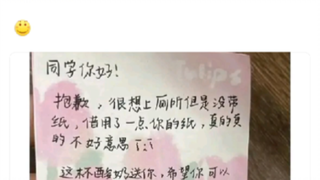 Tulips
同学你好!
抱歉,很想上厕所但是没带
纸,借用了一点你的纸,真的真
的不好意思 T;T
这杯酸奶送你,希望你可以